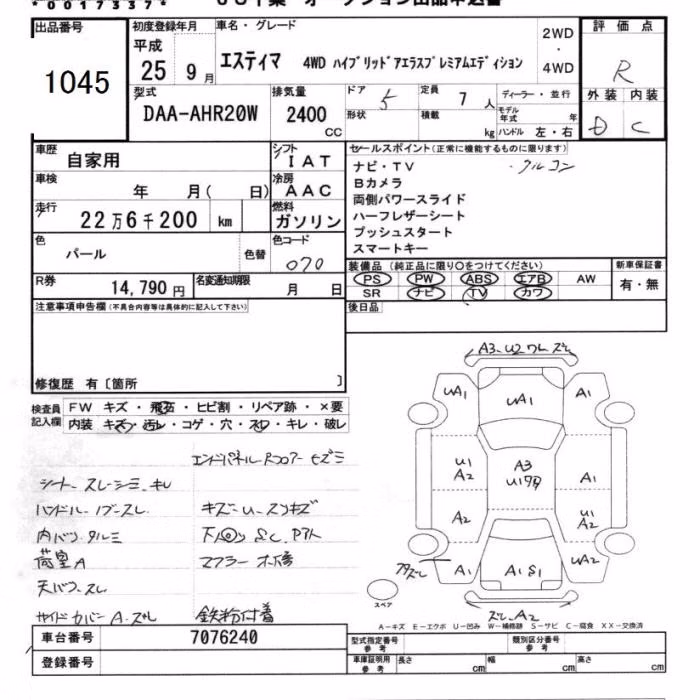 *0017337*
出品番号 初度登録年月 車名・グレード 2WD ・ 4WD 評価点
1045 平成 25 9月 エスティマ 4WD ハイブリッドアエラスプレミアムエディション R
型式 排気量 ドア 定員 ディーラー・並行 外装 内装
DAA-AHR20W 2400 CC 5 7 人 モデル年式 年 D C
形状 積載 kg ハンドル 左・右
車歴 自家用 シフト IAT セールスポイント(正常に機能するものに限ります)
車検 年 月( 日) 冷房 AAC ナビ・TV ・クルコン
Bカメラ
走行 22万6千200 km 燃料 ガソリン 両側パワースライド
ハーフレザーシート
色 パール 色替 色コード 070 プッシュスタート
スマートキー
R券 14,790円 名変通知期限 月 日 装備品(純正品に限り○をつけてください) 新車保証書
PS PW ABS エアB AW 有・無
SR ナビ TV カワ
注意事項申告欄(不具合内容等は具体的に記入して下さい) 後日品
修復歴 有〔箇所 〕
検査員記入欄 FW キズ・飛石・ヒビ割・リペア跡・×要
内装 キズ・汚レ・コゲ・穴・スレ・キレ・破レ
シート スレ・シミ・キレ
ハンドル・ノブ・スレ キズ・U・スリキズ
内バリ
荷室A マフラー
天バリ スレ
サイドカバー A・ズレ 鉄粉付着
A3 U2 ワレ ズレ
UA1 UA1 A1
U1 A2 A3 A1
A2 U1 A2
A1 A1 S1 UA2
ズレ A2
スペア
A-キズ E-エクボ U-凹み W-補修跡 S-サビ C-腐食 XX-交換済
車台番号 7076240 型式指定番号 参考 類別区分番号 参考
登録番号 車庫証明用 参考 長さ cm 幅 cm 高さ cm